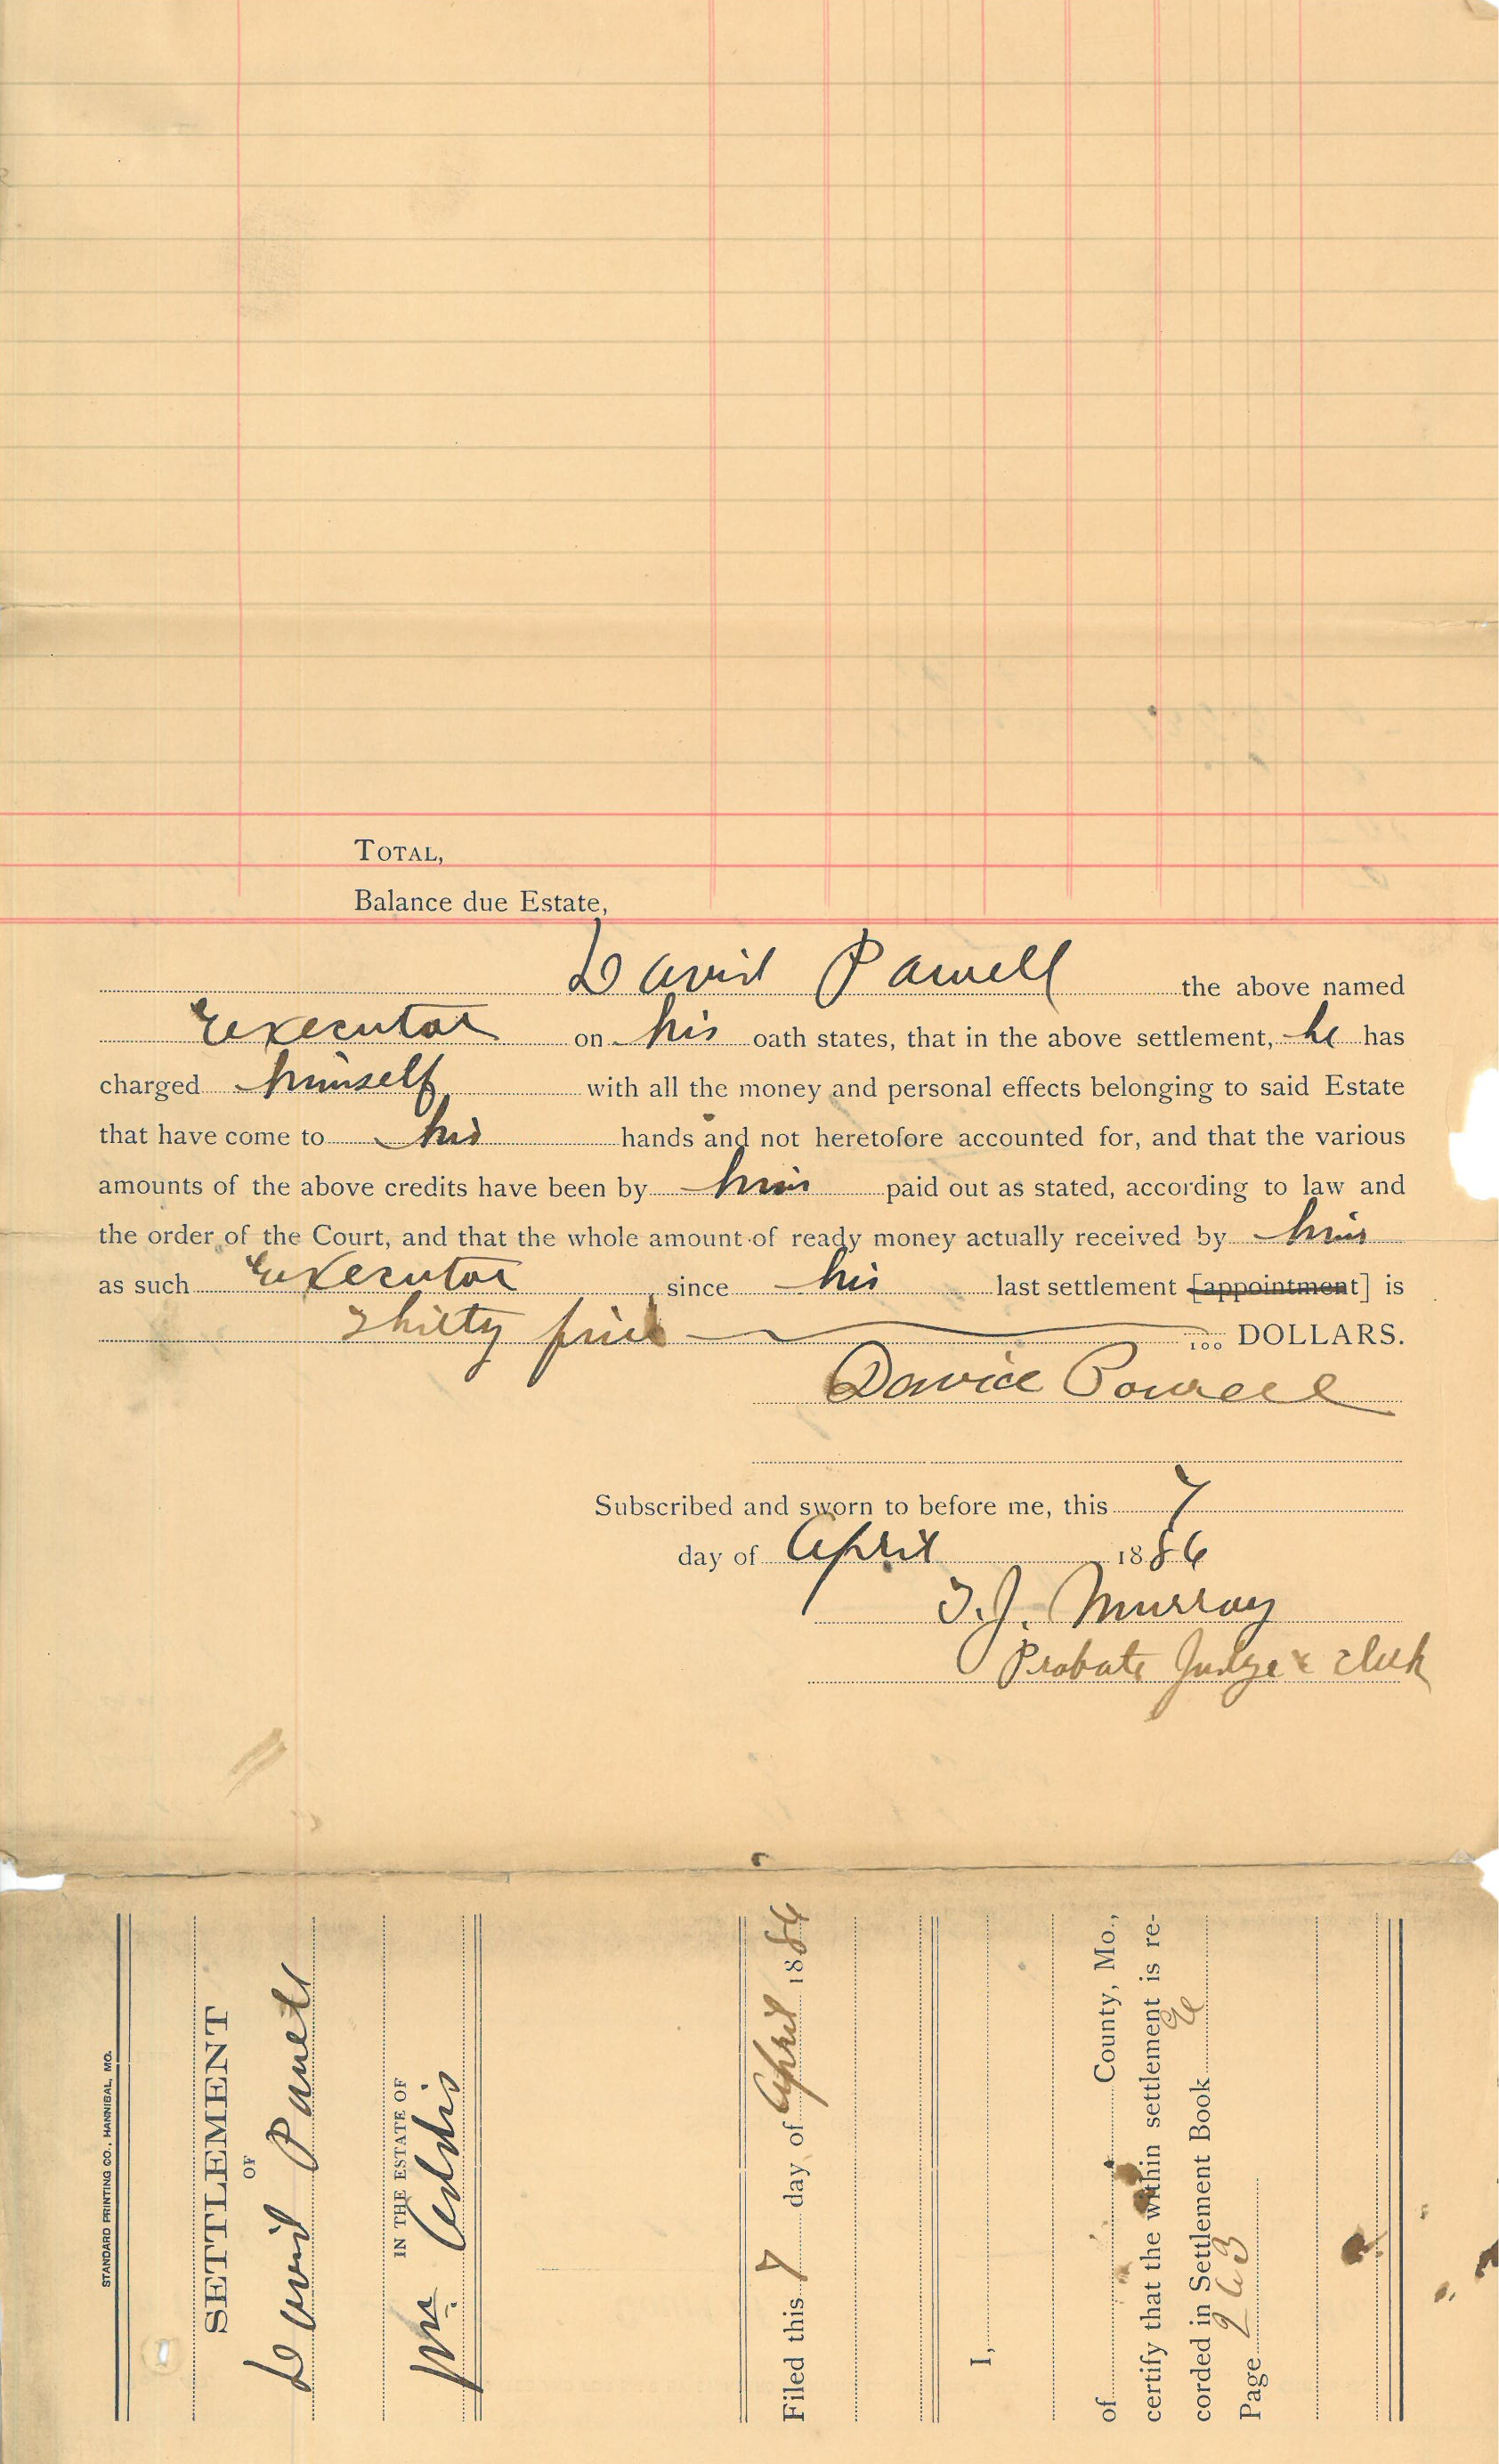 TOTAL,
Balance due Estate,
David Powell the above named
Executor on his oath states, that in the above settlement, he has
charged himself with all the money and personal effects belonging to said Estate
that have come to his hands and not heretofore accounted for, and that the various
amounts of the above credits have been by him paid out as stated, according to law and
the order of the Court, and that the whole amount of ready money actually received by him
as such Executor since his last settlement [appointment] is
100 DOLLARS.
David Powell
Subscribed and sworn to before me, this 7
day of April 1886
T.J. Murray
Probate Judge & Clerk
STANDARD PRINTING CO., HANNIBAL, MO.
SETTLEMENT
OF
David Powell
IN THE ESTATE OF
Wm
Filed this 7 day of April 1886
I,
of County, Mo.,
certify that the within settlement is re-
corded in Settlement Book
Page 263